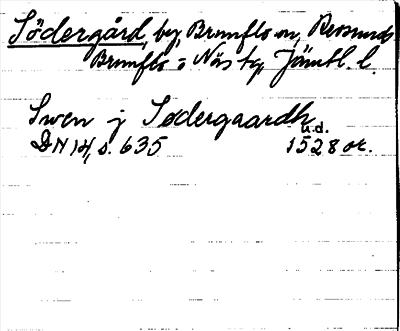 Södergård, by, Brunflo sn, Revsunds
Brunflo o Näs tg, Jämtl. l.
Swen j Sødergaardh
u.d.
DN 14, s. 635 1528 or.